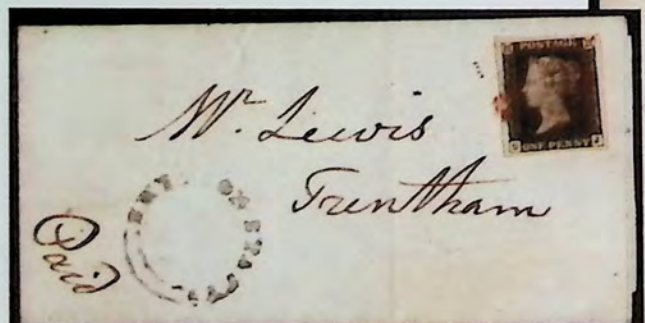 POSTAGE
ONE PENNY
Mr. Lewis
Trentham
Paid